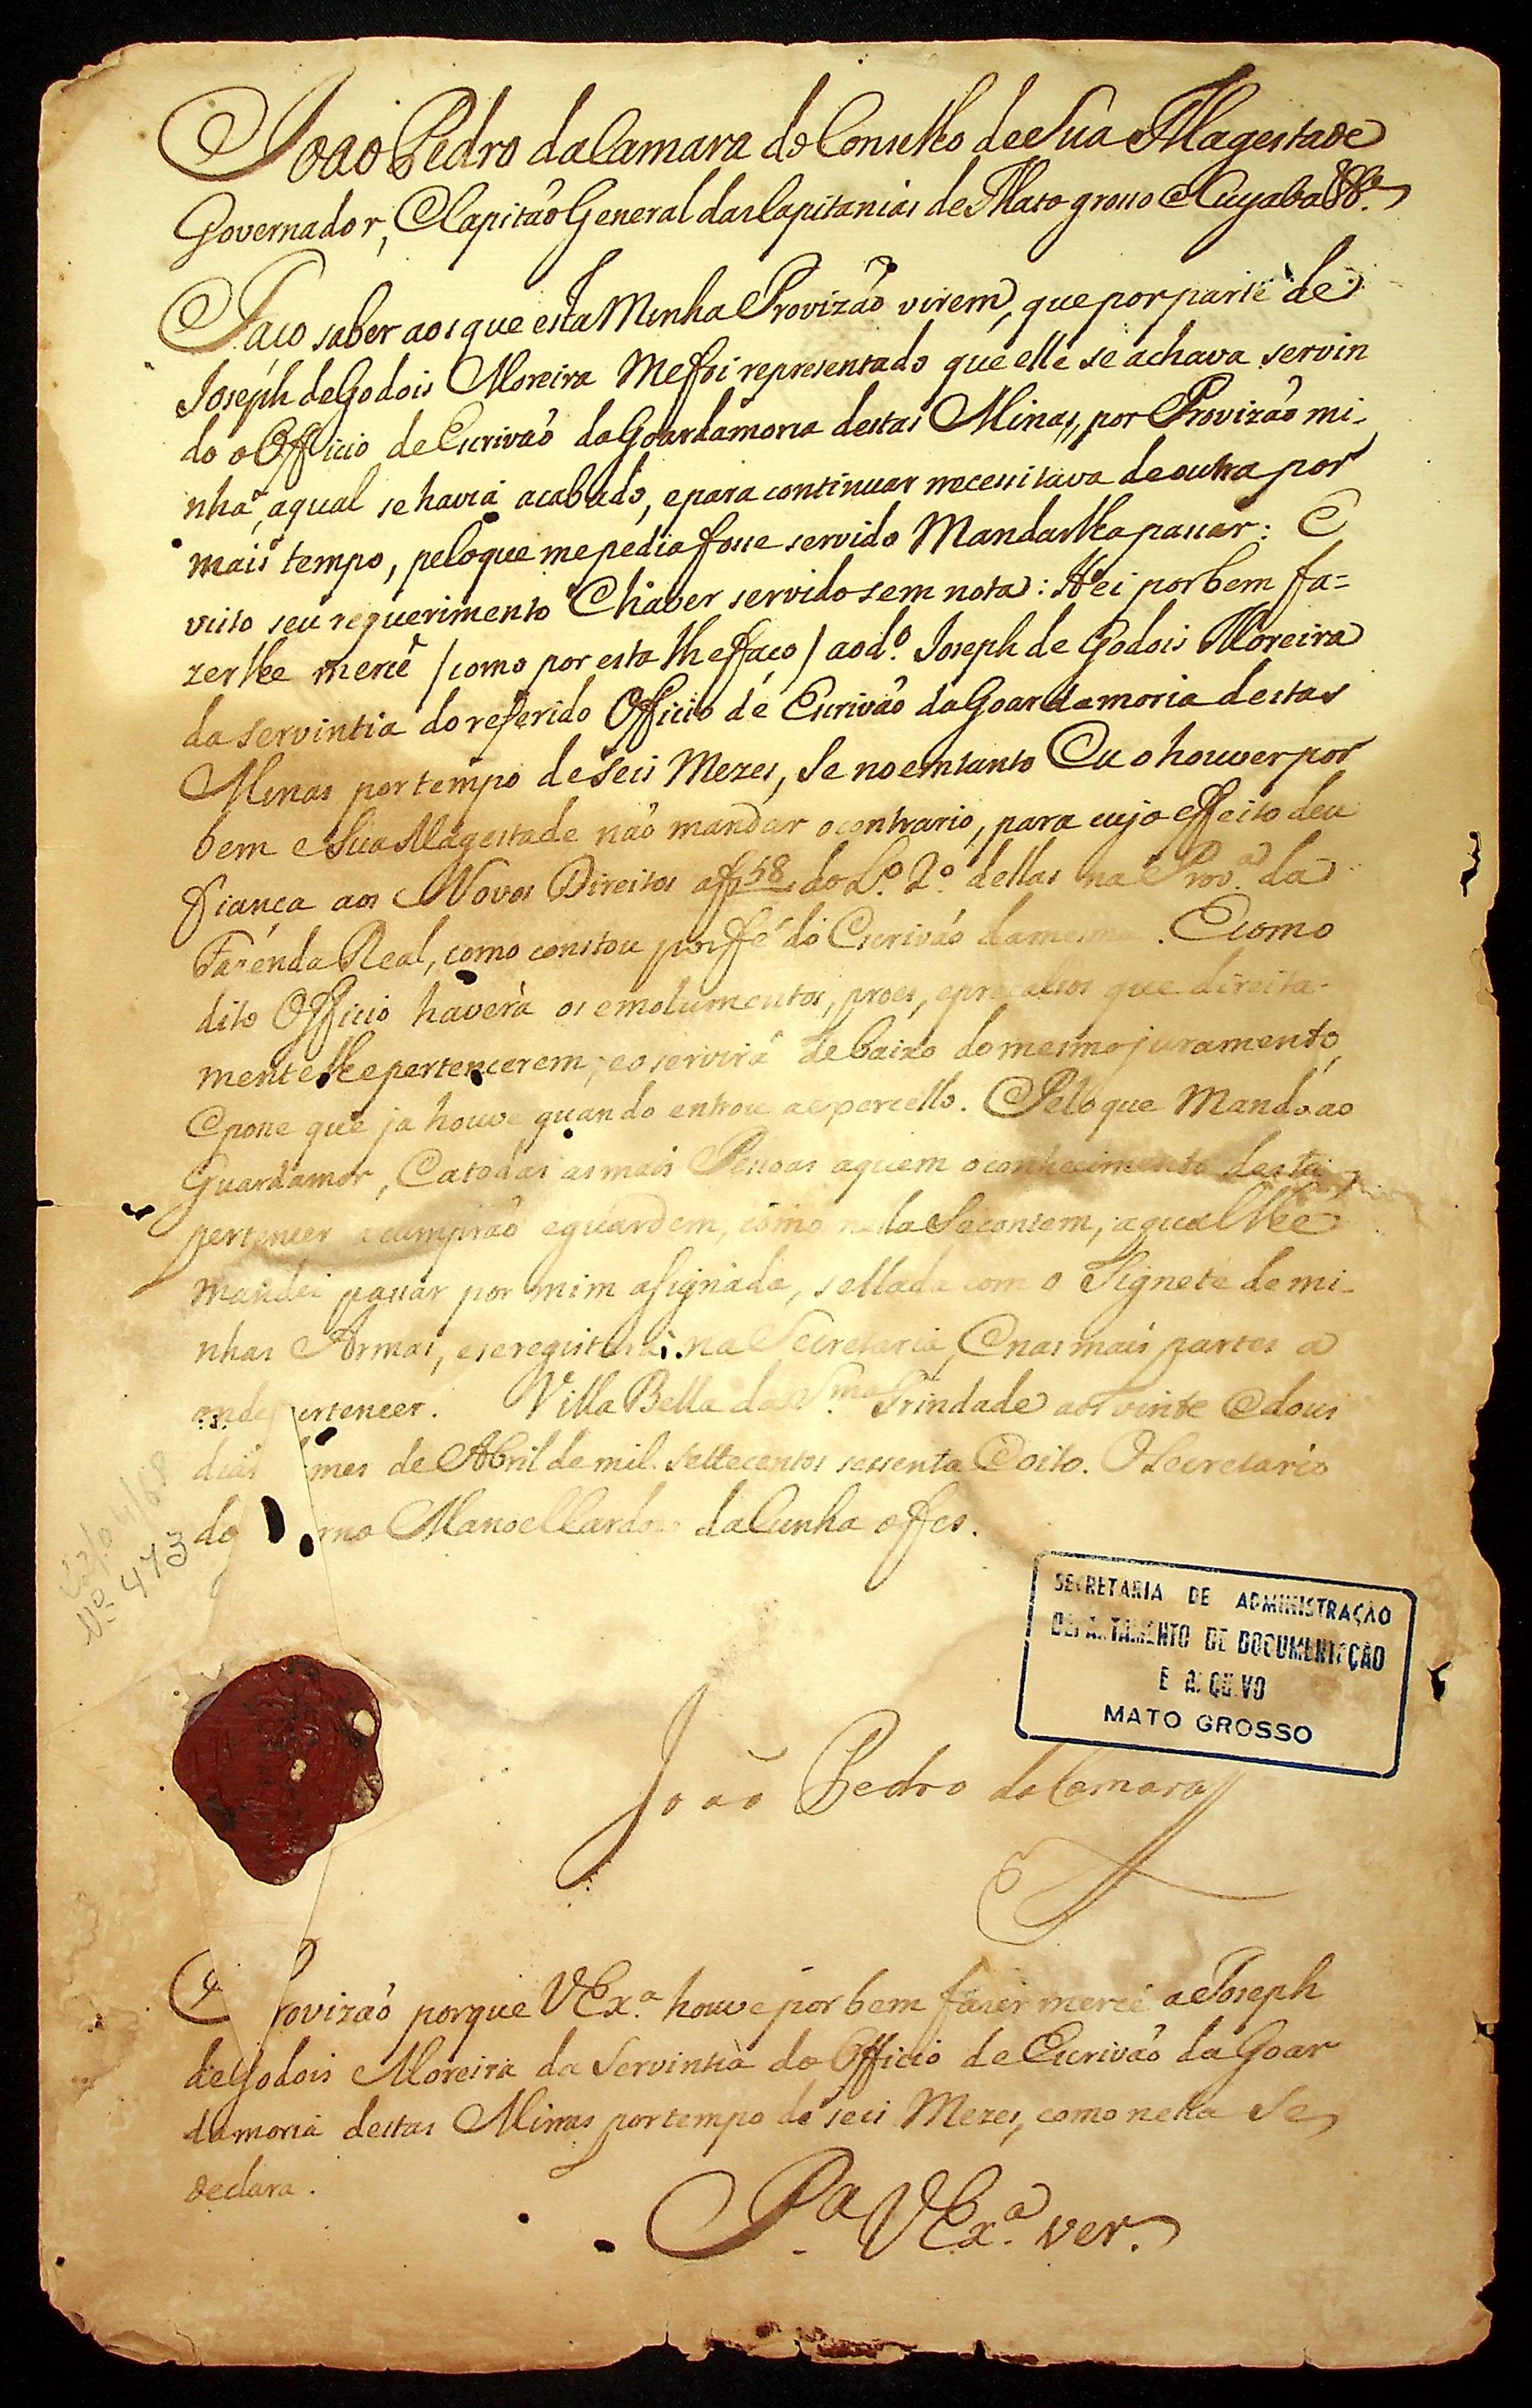 João Pedro da Camara do Conselho de Sua Magestade
Governador, e Capitão General das Capitanias de Mato grosso e Cuyabá &c.ª
Faço saber aos que esta Minha Provizão virem, que por parte de
Joseph de Godois Moreira Me foi representado que elle se achava servin
do o Officio de Escrivão da Goardamoria destas Minas, por Provizão mi-
nha, a qual se havia acabado, e para continuar necessitava de outra por
mais tempo, pelo que me pedia fosse servido Mandarlha passar: E
visto seu requerimento e haver servido sem nota: Hei por bem fa=
zerlhe mercê / como por esta lhe faço / ao d.º Joseph de Godois Moreira
da servintia do referido Officio de Escrivão da Goardamoria destas
Minas por tempo de seis Mezes, se no emtanto Eu o houver por
bem e Sua Magestade não mandar o contrario, para cujo effeito deu
fiança aos Novos Direitos a f 58 do L.º 2.º dellas na Prov.ª da
Fazenda Real, como constou por fé do Escrivão da mesma. E como
dito Officio haverá os emolumentos, proes, e precalsos que direita-
mente lhe pertencerem, e o servirá debaixo do mesmo juramento,
e posse que ja houve quando entrou a exercello. Pelo que Mando ao
Guardamor, e a todas as mais Pessoas a quem o conhecimento desta
pertencer a cumprão e guardem, como nella se contem, a qual lhe
mandei passar por mim asignada, sellada com o Signete de mi-
nhas Armas, e se registará na Secretaria, e nas mais partes a
onde pertencer. Villa Bella da S.ma Trindade aos vinte e dous
dias mes de Abril de mil settecentos sessenta e oito. O Secretario
do rno Manoel Cardoso da Cunha o fes.
22/04/68
Nº 473
SECRETARIA DE ADMINISTRAÇÃO
DEPARTAMENTO DE DOCUMENTAÇÃO
E ARQUIVO
MATO GROSSO
João Pedro da Camara
P rovizão porque V Ex.ª houve por bem fazer mercê a Joseph
de Godois Moreira da Servintia do Officio de Escrivão da Goar
damoria destas Minas por tempo de seis Mezes, como nella se
declara.
P.ª V Ex.ª ver.